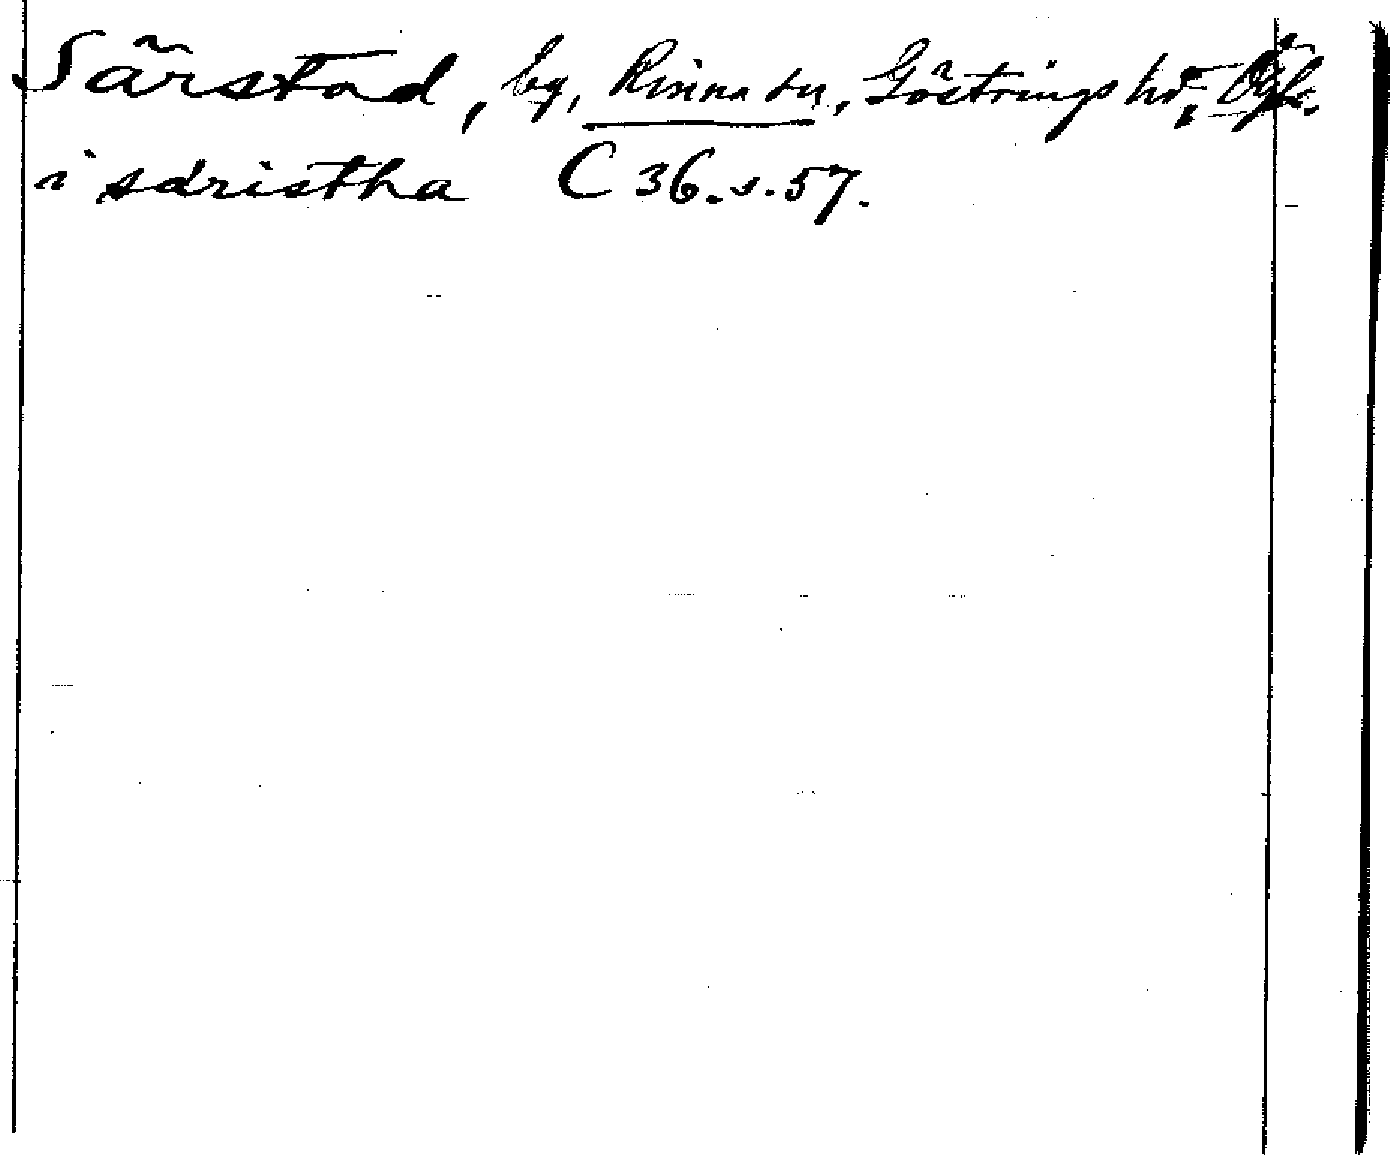 Särstad, by, Rinna sn, Göstrings hd, Ögl.
i sdristha C 36. s. 57.